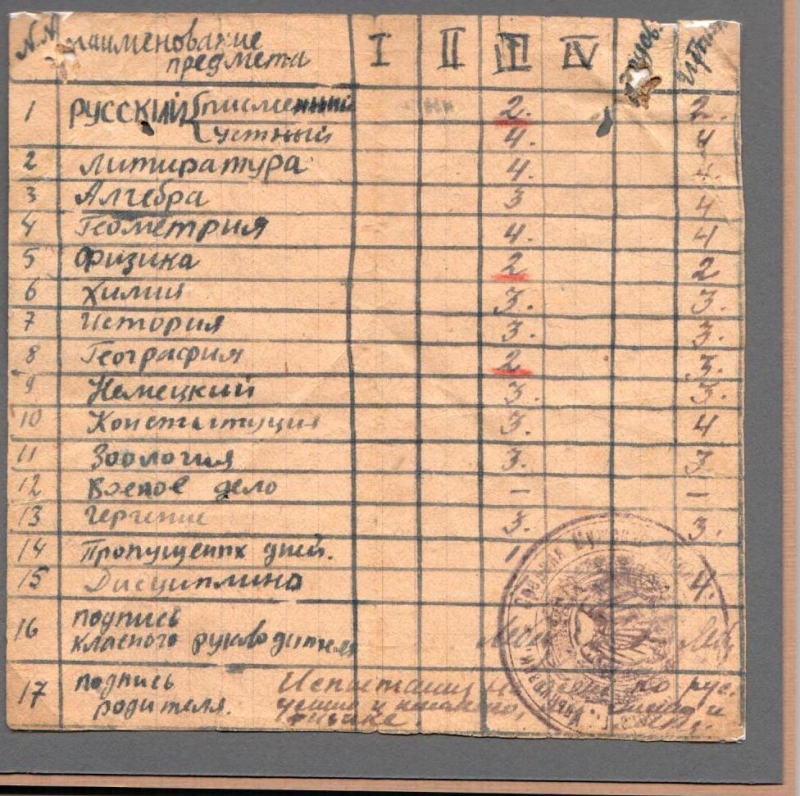 N.N наименование предмета I II III IV Испыт. Итог.
1 Русский писменный 2. 2.
устный 4. 4
2 Литиратура 4. 4.
3 Алгебра 3 4
4 Геометрия 4. 4
5 Физика 2 2
6 Химия 3. 3.
7 История 3. 3.
8 География 2 3.
9 Немецкий 3. 3.
10 Конституция 3. 4
11 Зоология 3. 3
12 Военое дело – –
13 Черчение 3. 3.
14 Пропущенх дней.
15 Дисциплина 4.
16 подпись класного руководителя
17 подпись родителя. Испытания по рус.
физике